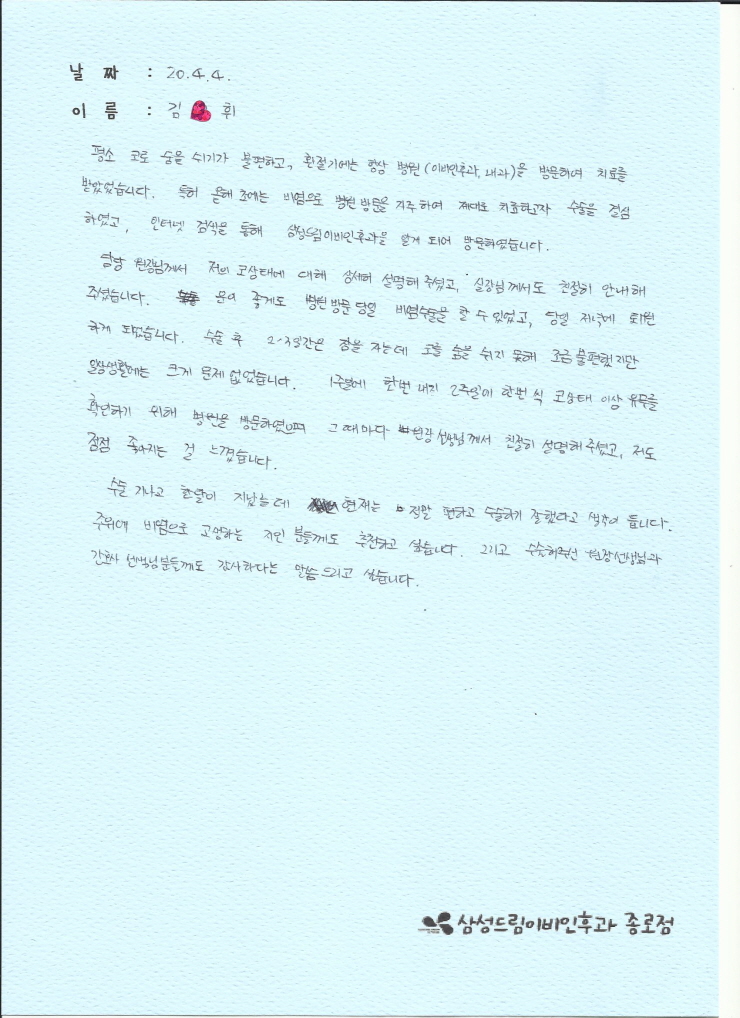 날 짜 : 20.4.4.
이 름 : 김 휘
평소 코로 숨을 쉬기가 불편하고, 환절기에는 항상 병원(이비인후과, 내과)을 방문하여 치료를
받았었습니다. 특히 올해 초에는 비염으로 병원 방문을 자주 하여 제대로 치료하고자 수술을 결심
하였고, 인터넷 검색을 통해 삼성드림이비인후과을 알게 되어 방문하였습니다.
담당 원장님께서 저의 코상태에 대해 상세히 설명해 주셨고, 실장님께서도 친절히 안내해
주셨습니다. 운이 좋게도 병원 방문 당일 비염수술을 할 수 있었고, 당일 저녁에 퇴원
하게 되었습니다. 수술 후 2~3일간은 잠을 자는데 코를 숨을 쉬지 못해 조금 불편했지만
일상생활에는 크게 문제 없었습니다. 1주일에 한번 내지 2주일에 한번 씩 코상태 이상 유무를
확인하기 위해 병원을 방문하였으며 그때마다 원장 선생님께서 친절히 설명해 주셨고, 저도
점점 좋아지는 걸 느꼈습니다.
수술 지나고 한달이 지났는데 현재는 정말 편하고 수술하기 잘했다고 생각이 듭니다.
주위에 비염으로 고생하는 지인 분들께도 추천하고 싶습니다. 그리고 수술해주신 원장선생님과
간호사 선생님분들께도 감사하다는 말씀 드리고 싶습니다.
삼성드림이비인후과 종로점